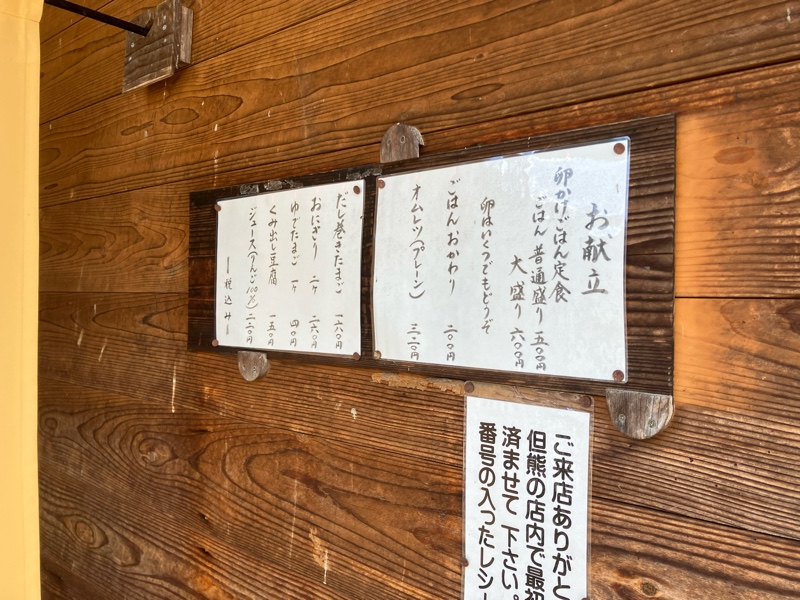 お献立
卵かけごはん定食
ごはん 普通盛り 五〇〇円
大盛り 六〇〇円
卵はいくつでもどうぞ
ごはんおかわり 二〇〇円
オムレツ(プレーン) 三二〇円
だし巻きたまご 一六〇円
おにぎり 二ケ 二六〇円
ゆでたまご 一ケ 四〇円
くみ出し豆腐 一五〇円
ジュース(りんご100%) 二二〇円
ー税込みー
ご来店ありがと
但熊の店内で最初
済ませて 下さい。
番号の入ったレシー